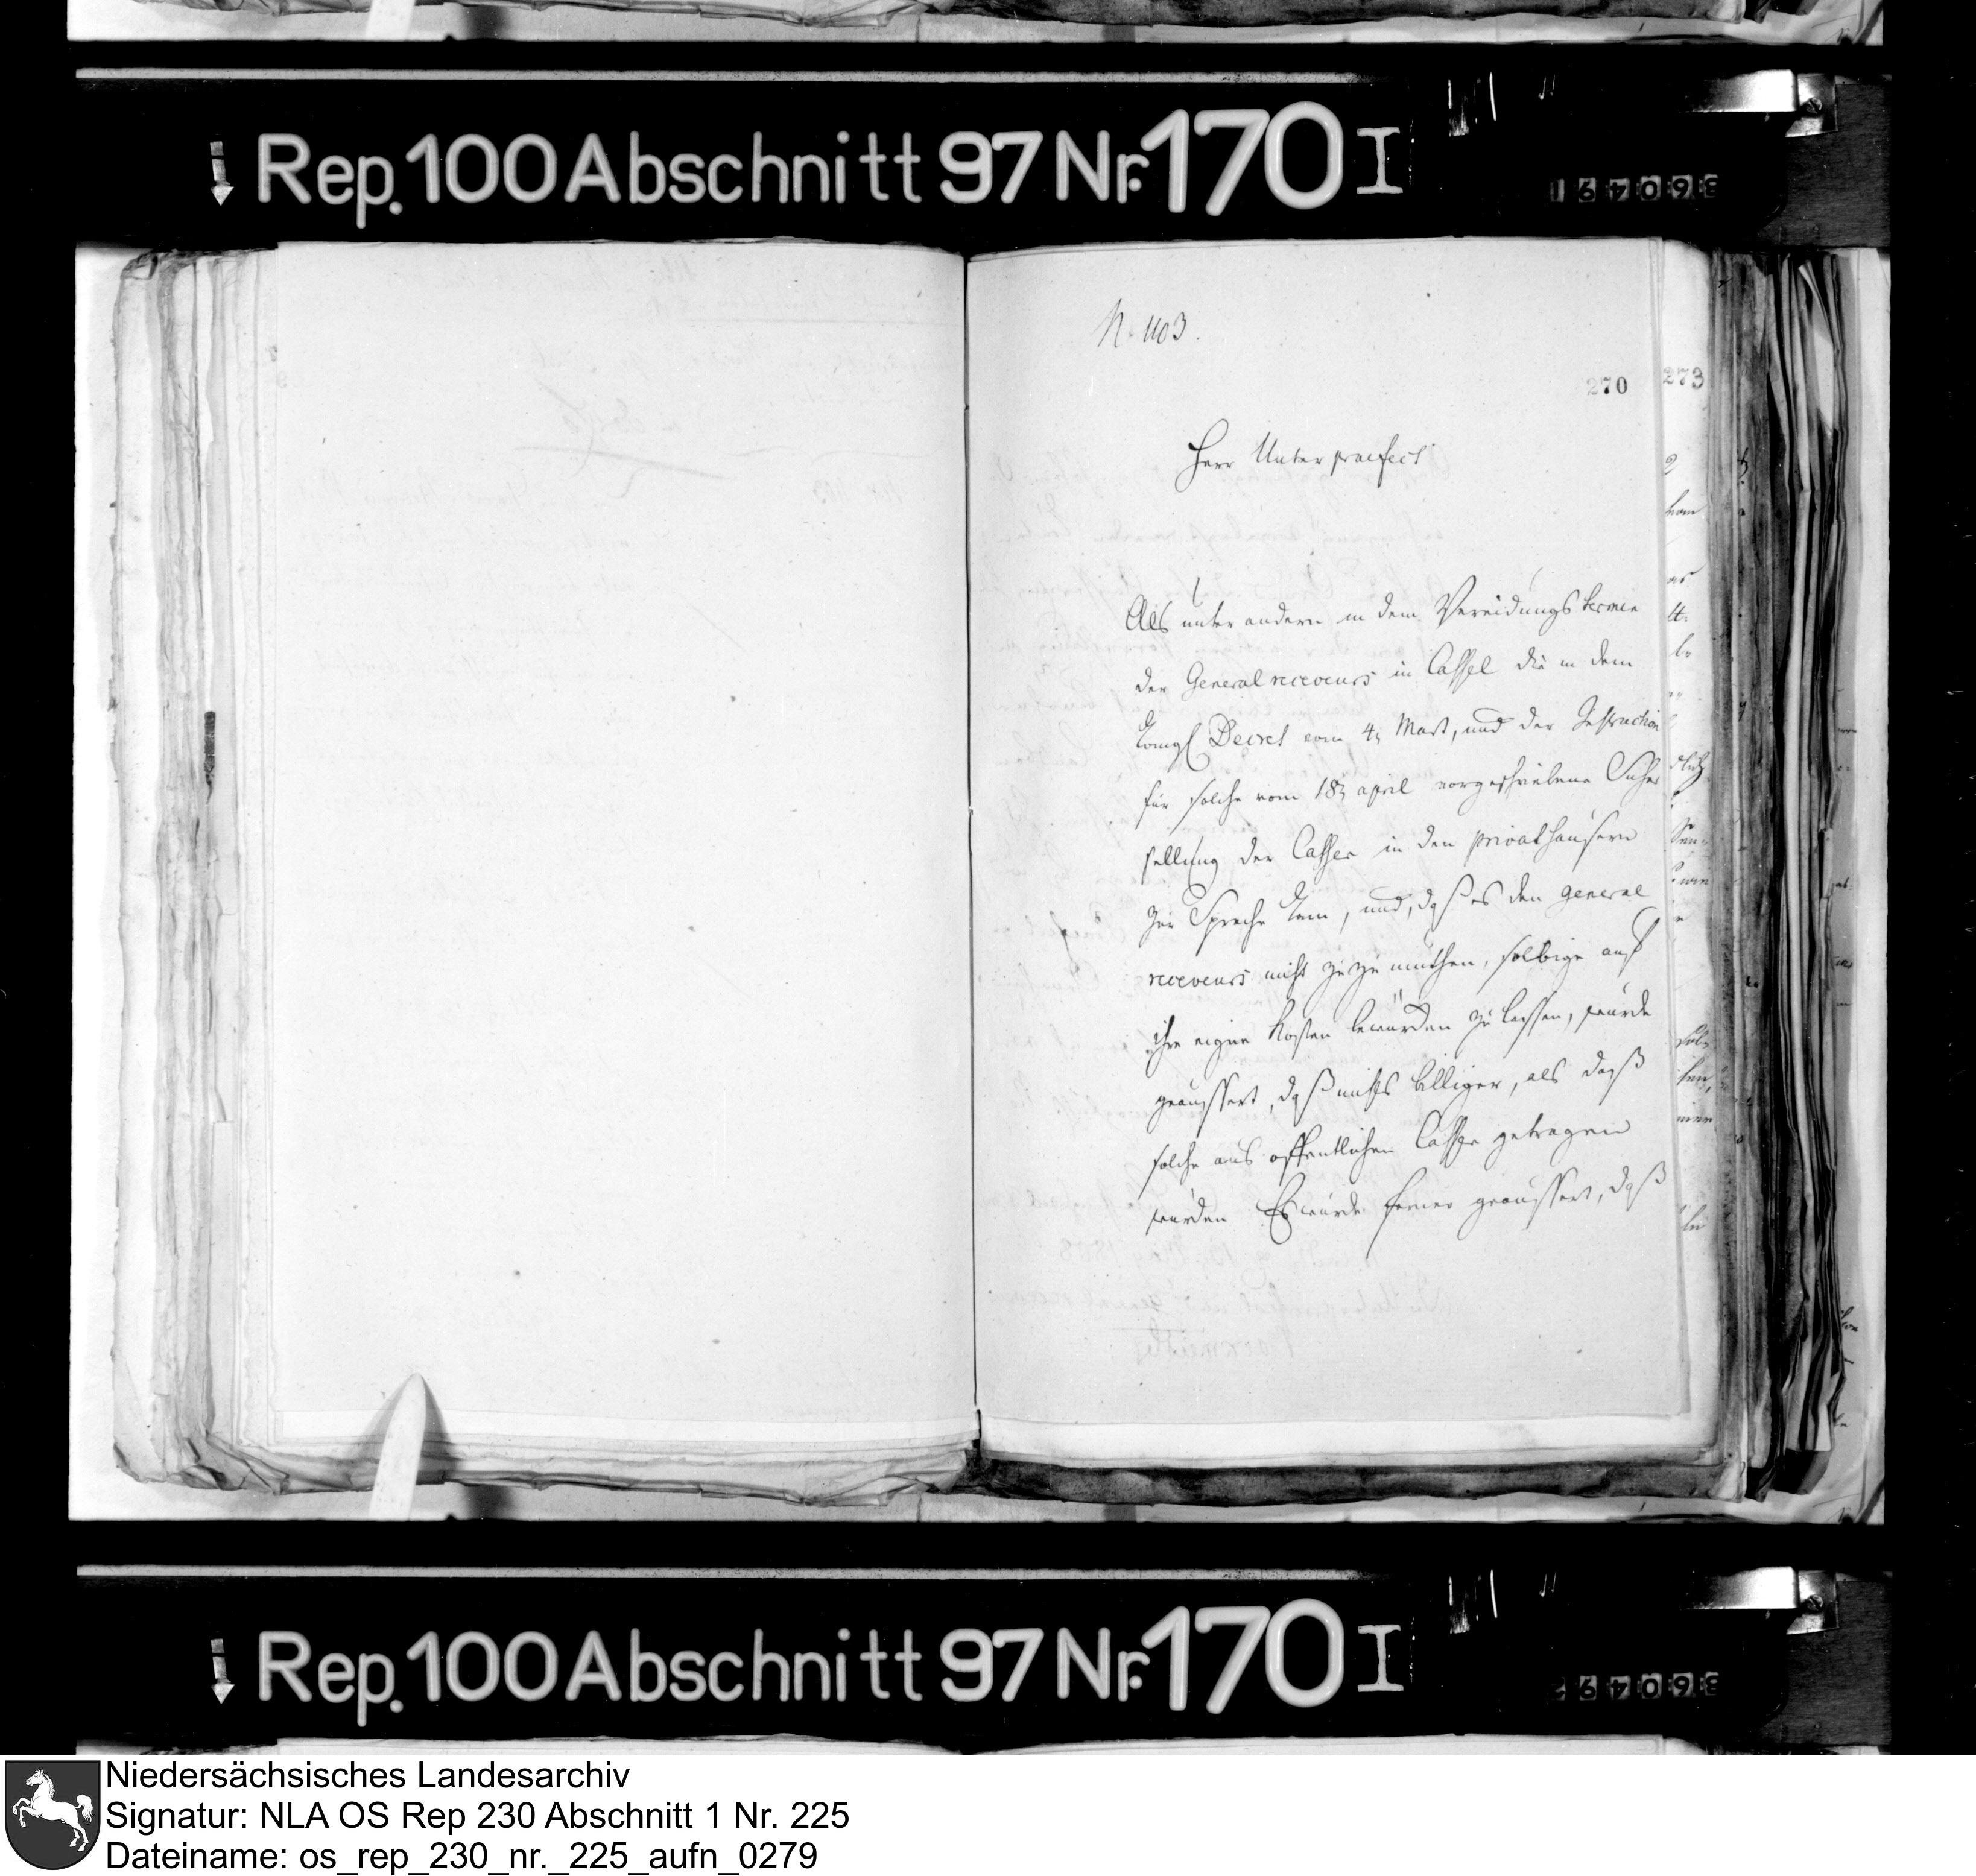 Rep. 100 Abschnitt 97 Nr. 170 I
360491
N. 1103.
270
273
Herr Unterpraefect
Als unter andern in dem Vereidungs termin
der Generalreceveurs in Cassel die in dem
Königl Decret vom 4t Mart, und der Instruction
für solche vom 18t april vorgeschriebene Sicher
stellung der Cassen in den privathäusern
zur Sprache kam, und, daß es den general
receveurs nicht zuzumuthen, selbige auf
ihre eigne Kosten zu lassen, wurde
geäussert, daß nichts billiger, als daß
solche aus öffentlichen Casse getragen
würden Es wurde ferner geäussert, daß
Rep. 100 Abschnitt 97 Nr. 170 I
Niedersächsisches Landesarchiv
Signatur: NLA OS Rep 230 Abschnitt 1 Nr. 225
Dateiname: os_rep_230_nr._225_aufn_0279